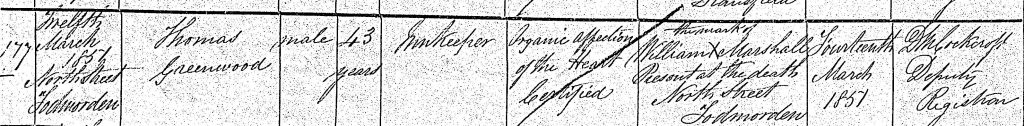 177
Twelfth
March
1851
North Street
Todmorden
Thomas
Greenwood
male
43
years
Innkeeper
Organic affection
of the Heart
Certified
the mark of
William X Marshall
Present at the death
North Street
Todmorden
Fourteenth
March
1851
Deputy
Registrar